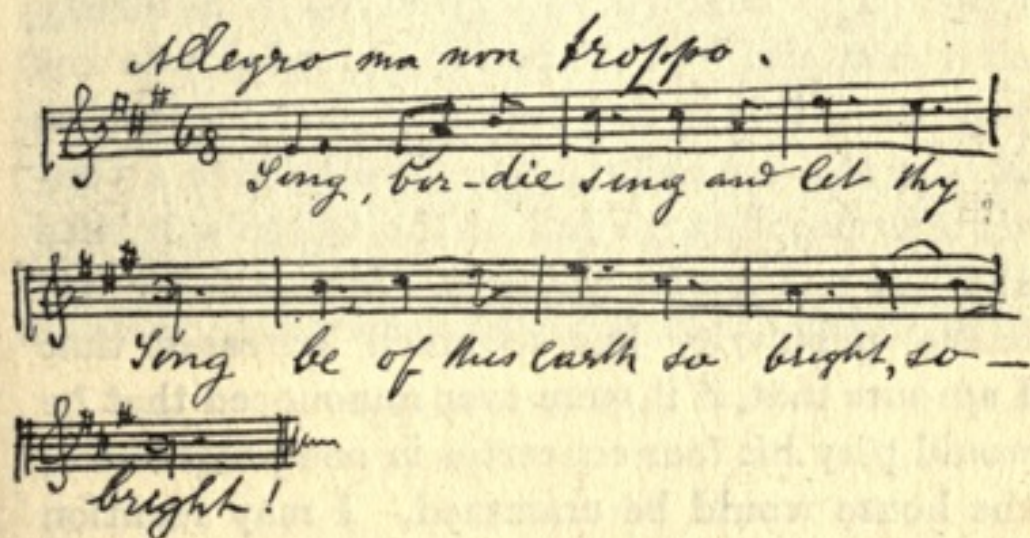 Allegro ma non troppo.
Sing, bir-die sing and let thy
Song be of this earth so bright, so —
bright!